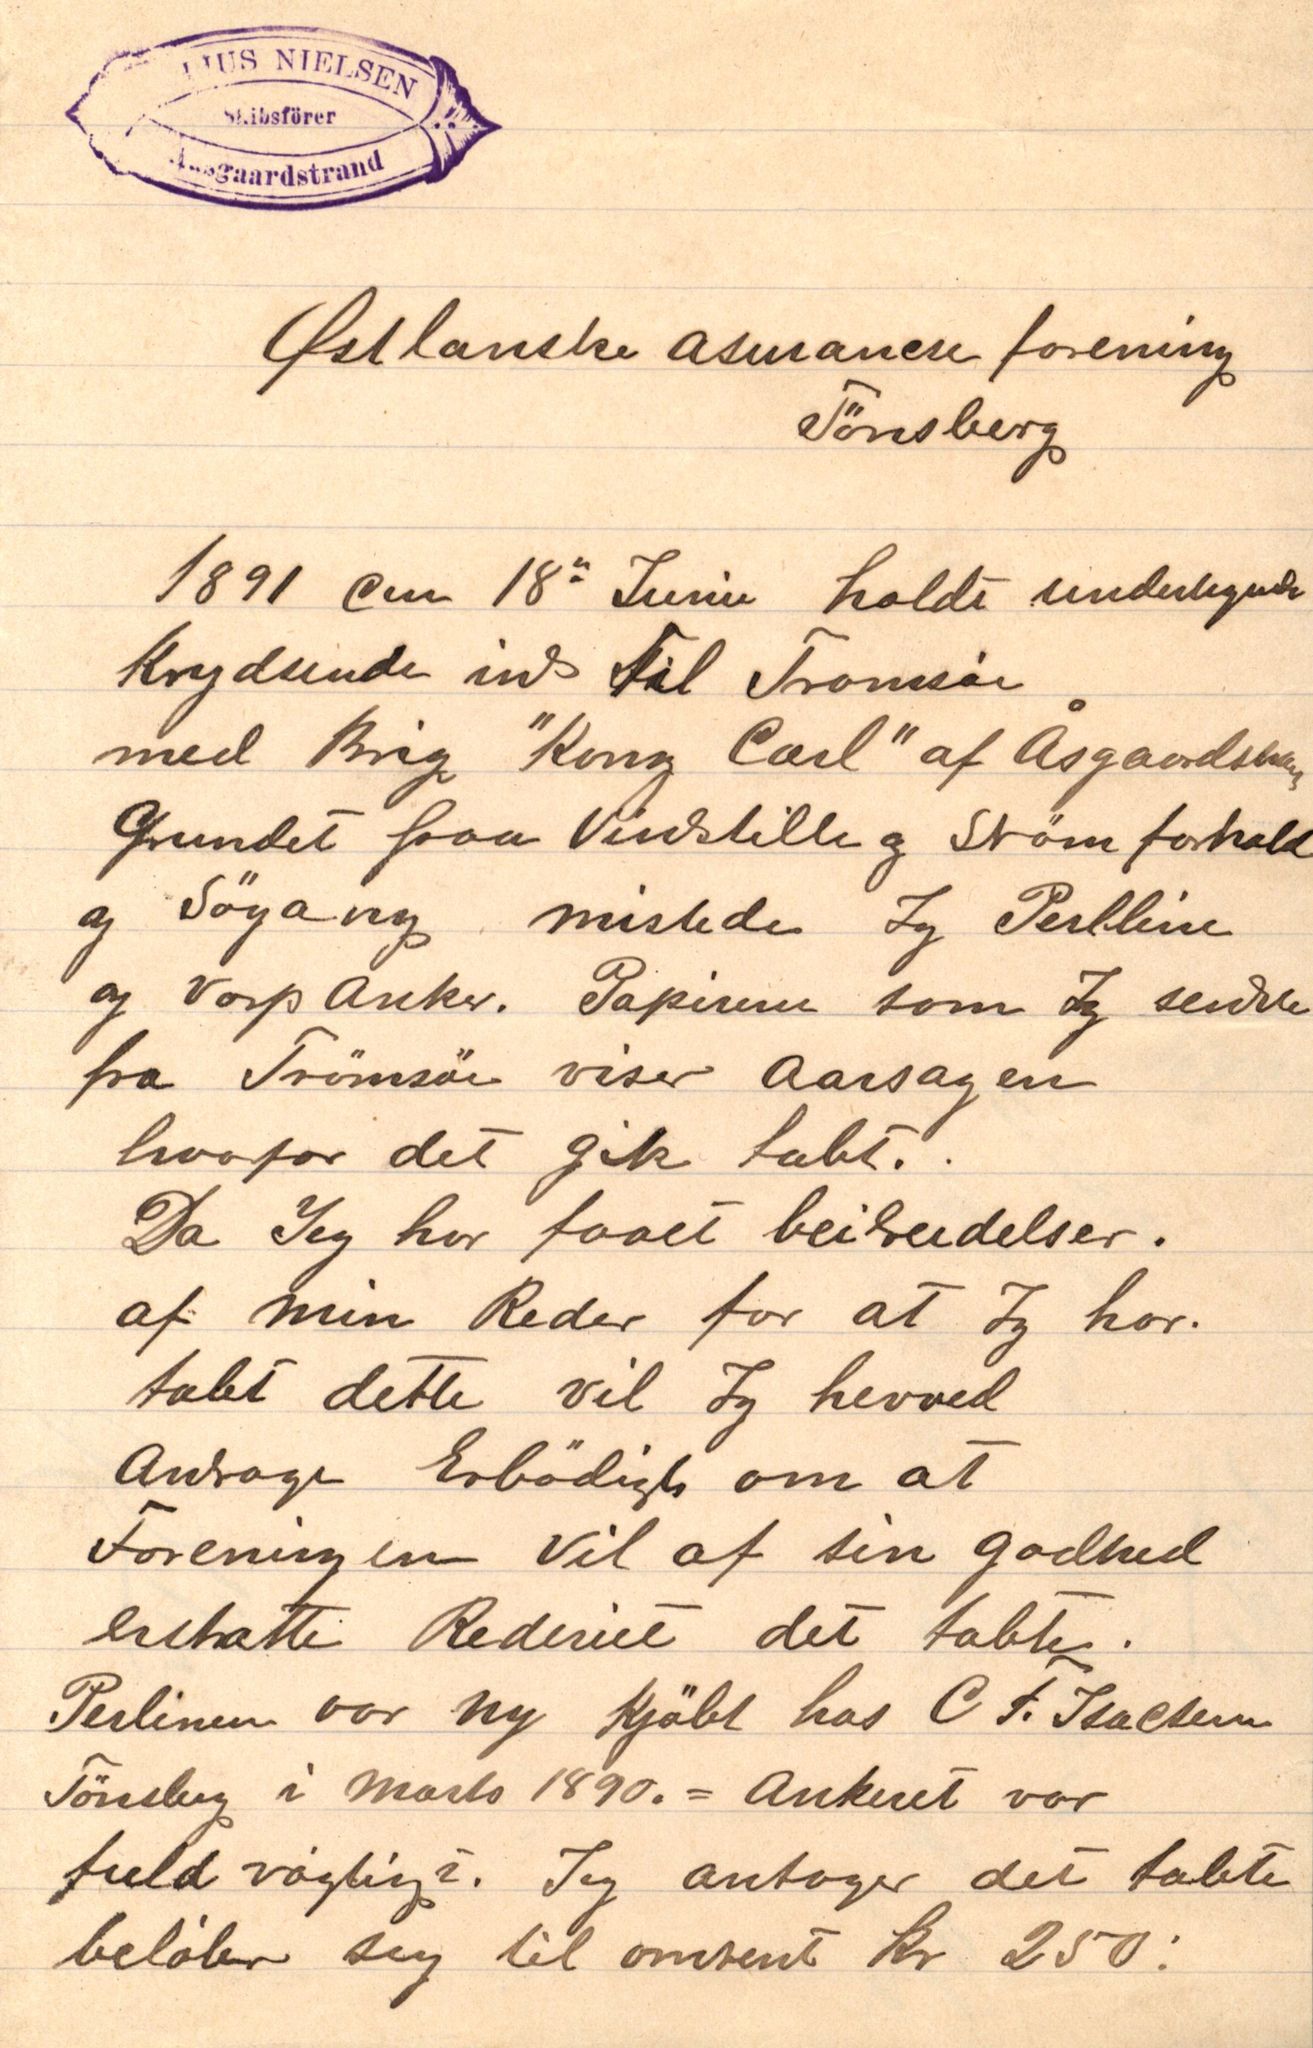 LIUS NIELSEN
Skibsförer
Aasgaardstrand
Østlanske Asurance forening
Tönsberg
1891 den 18n Junie holdt undertegnede
Krydsende ind Til Tromsöe
med Brig "Kong Carl" af Åsgaardstrand
Grundet paa Vindstille og Ström forhold
og Sögang mistede Jg Perlline
og Varp Anker. Papirene som Jg sendte
fra Trömsöe viser Aarsagen
hvorfor det gik tabt.
Da Jeg har faaet beibredelser.
af min Reder for at Jg har.
tabt dette vil Jg herved
Andrage Erbödigts om at
Foreningen vil af sin godhed
erstatte Rederiet det tabte.
Perlinen var ny kjöbt hos C F. Isachsen
Tönsberg i Marts 1890. = Ankeret var
fuld vägtigt. Jeg antager det tabte
belöber seg til omtrent Kr 250: